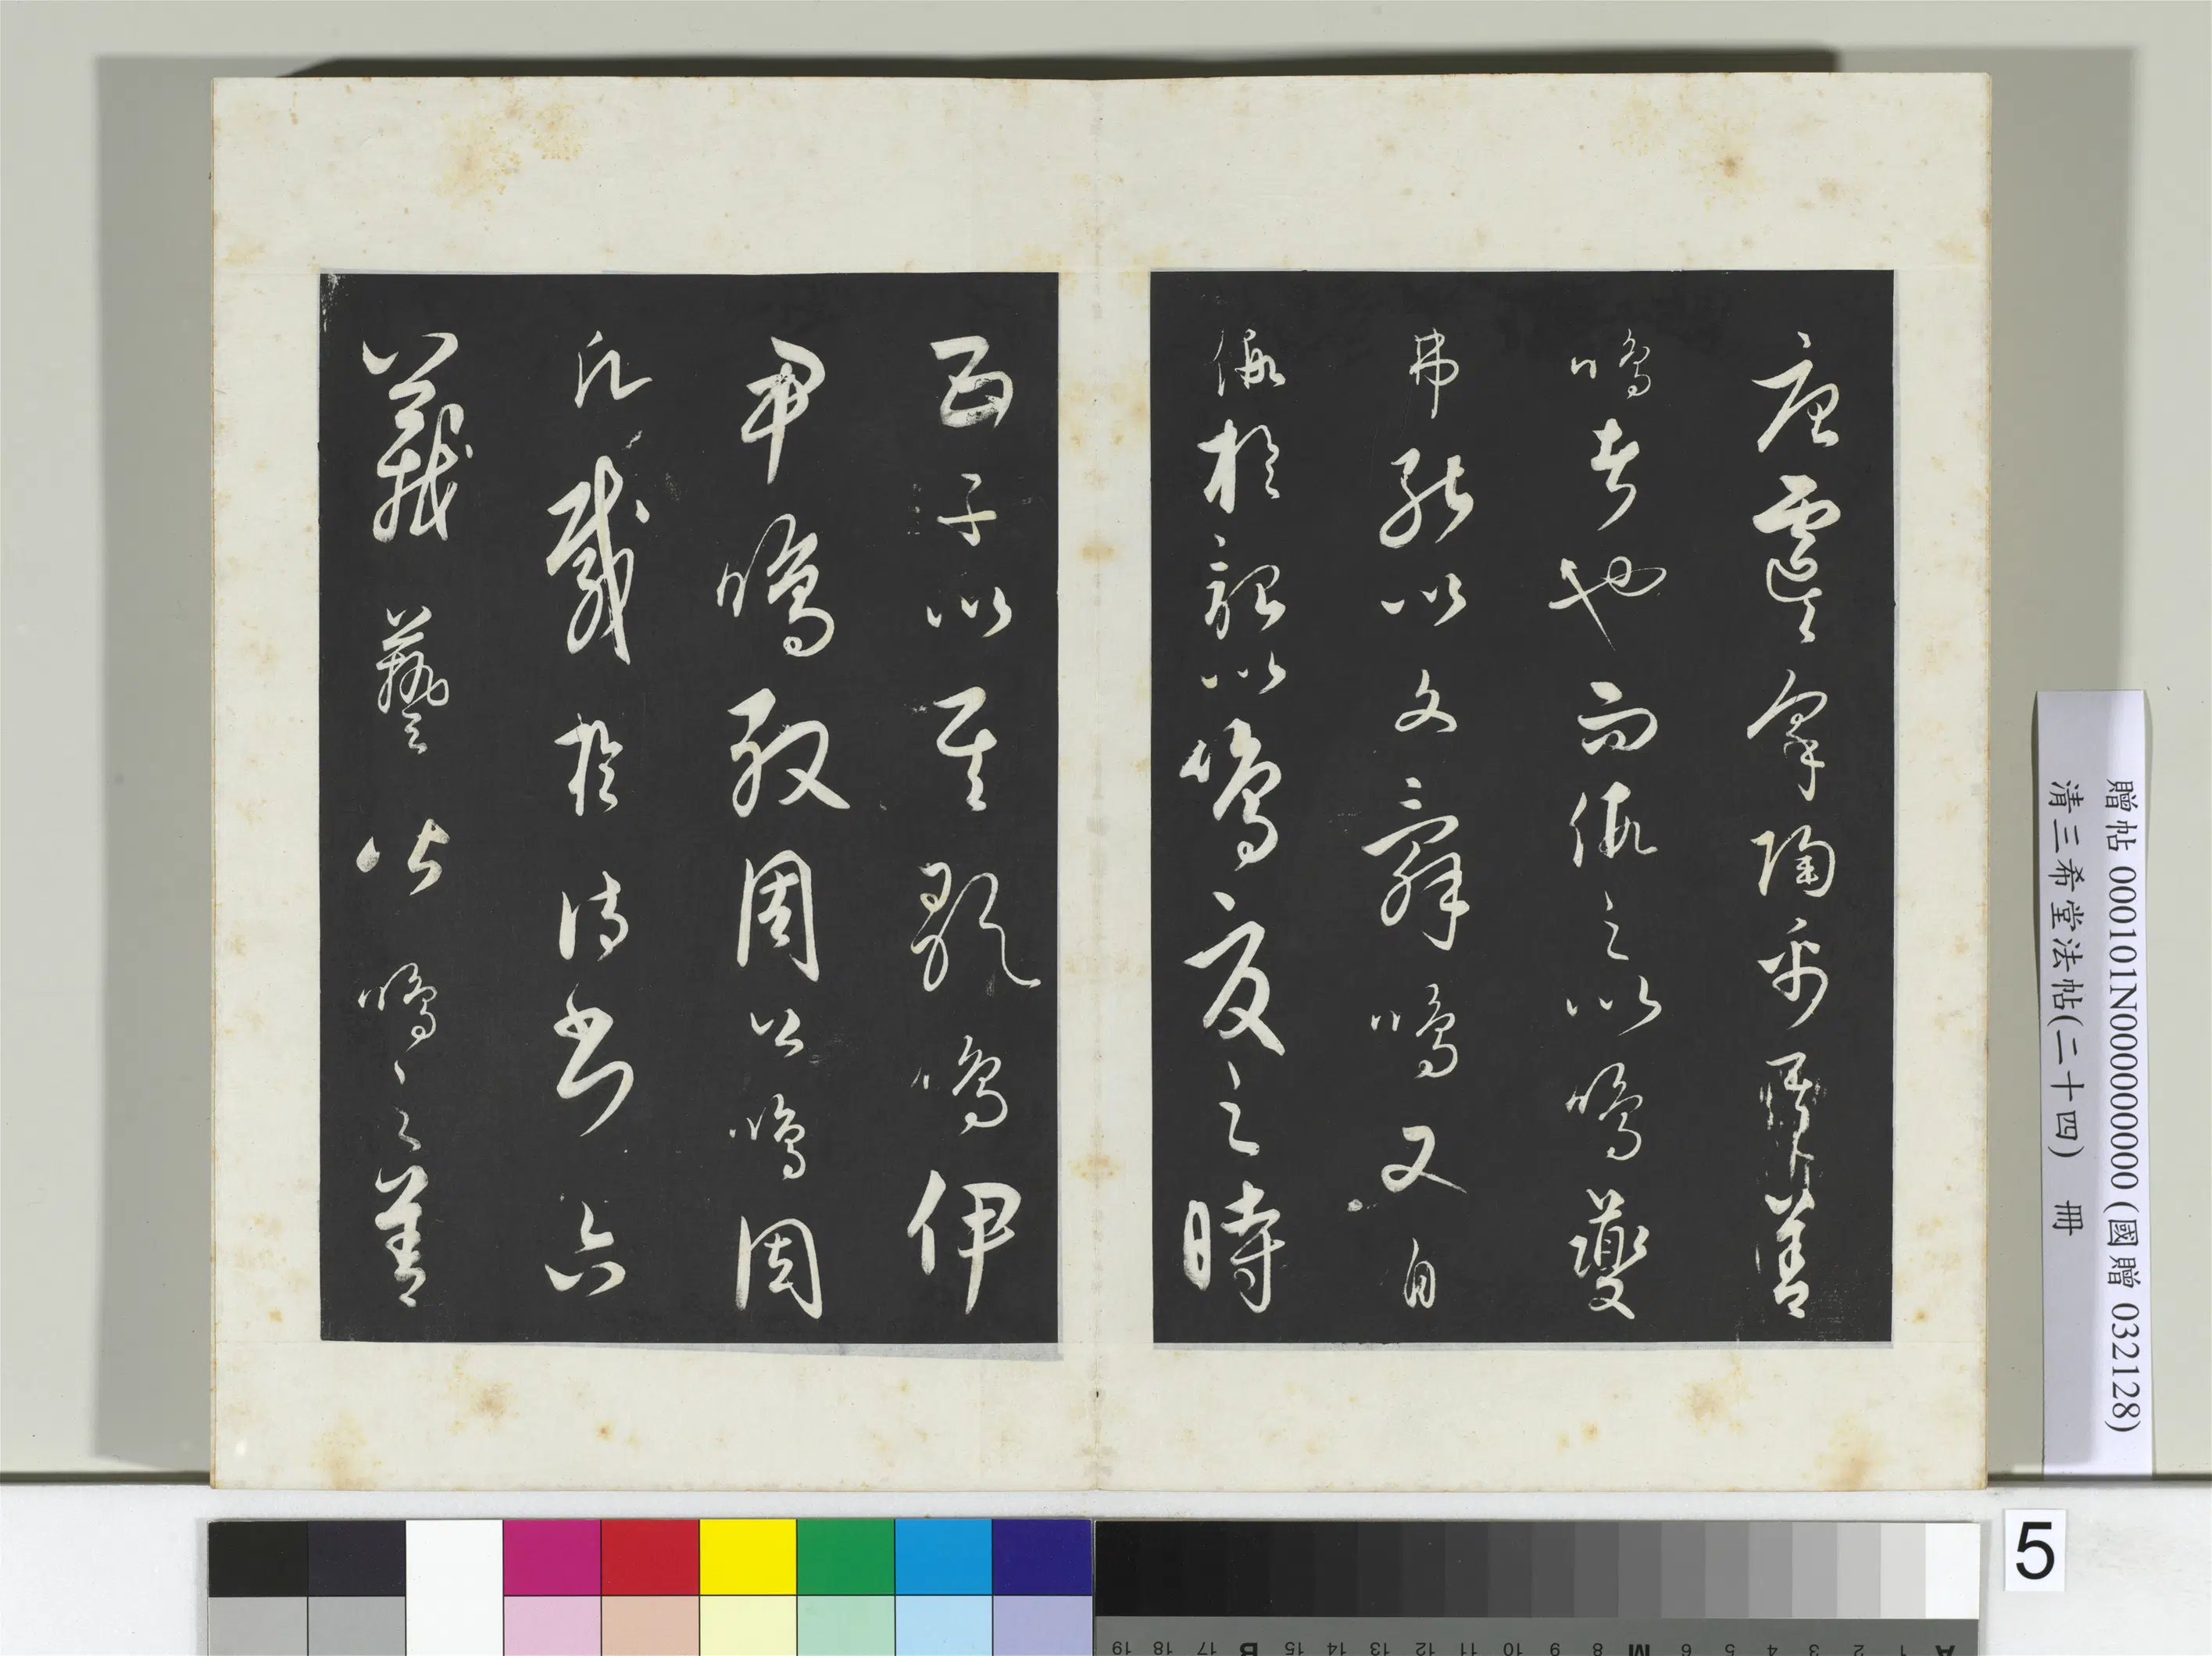 唐虞皋陶禹其善
鳴者也而假之以鳴夔
弗能以文辭鳴又自
假於韶以鳴夏之時
五子以其歌鳴伊
尹鳴殷周公鳴周
凡載於詩書六
藝皆鳴之善
贈帖 000101N000000000 (國贈 032128)
清三希堂法帖(二十四) 冊
5
19 18 17 B 16 15 14 13 12 11 10 9 8 M 7 6 5 4 3 2 1 A